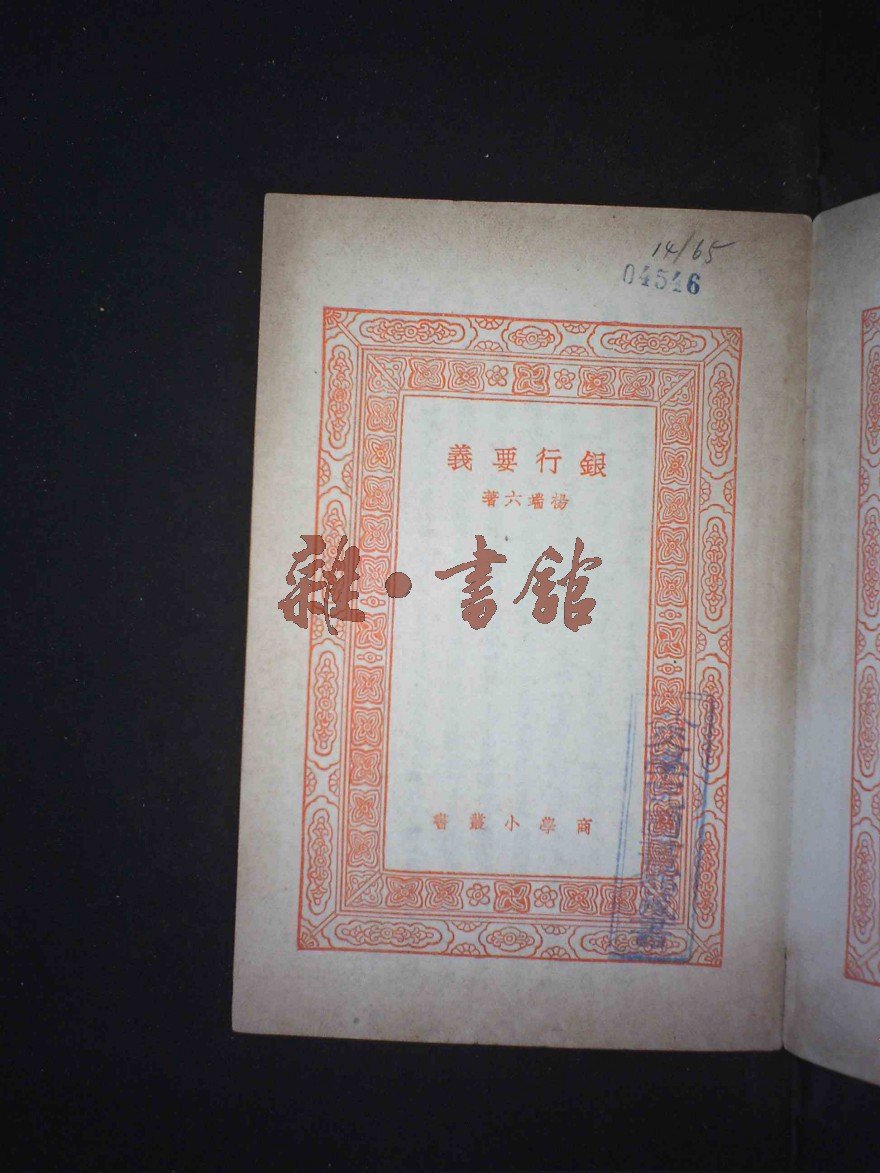 14/65
04546
銀行要義
楊端六著
雜·書館
商學小叢書